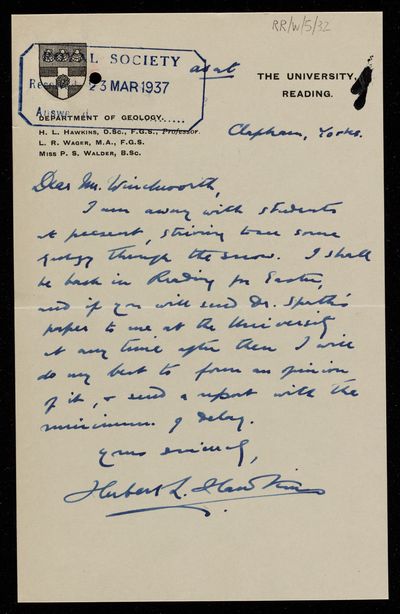 RR/W/5/32
ROYAL SOCIETY
Received 23 MAR 1937
Answered
as at
THE UNIVERSITY,
READING.
DEPARTMENT OF GEOLOGY.
H. L. HAWKINS, D.SC., F.G.S., Professor.
L. R. WAGER, M.A., F.G.S.
MISS P. S. WALDER, B.SC.
Clapham, Yorks.
Dear Mr. Winckworth,
I am away with students
at present, striving to see some
geology through the snow. I shall
be back in Reading for Easter,
and if you will send Dr. Spath's
paper to me at the University
at any time after then I will
do my best to form an opinion
of it, & send a report with the
minimum of delay.
Yours sincerely,
Herbert L. Hawkins